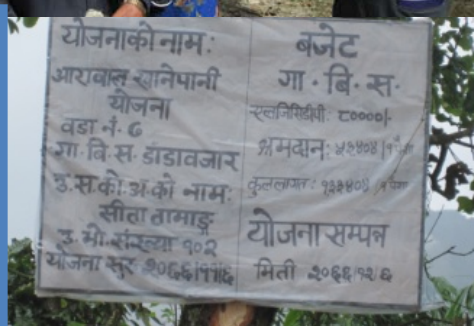 योजनाको नाम:
आरावाल खानेपानी
योजना
वडा नं. ७
गा.बि.स. डाँडावजार
उ.स.को अ.को नाम:
सीता तामाङ्ग
उ.भो.संख्या १०२
योजना सुरु २०६६।११।६
बजेट
गा.बि.स.
एलजिसिडीपी: ८००००।-
श्रमदान: ५३४०४।१पैसा
कुललागत: १३३४०४।१पैसा
योजना सम्पन्न
मिती २०६६।१२।६